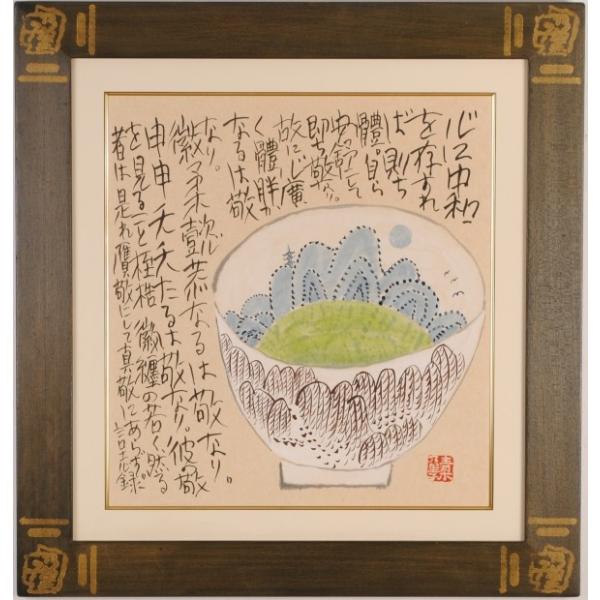 心に中和
を存すれ
ば則ち
體。自ら
安舒にして
即ち敬なり。
故に心廣
く體胖か
なるは敬
なり。
徽柔懿恭なるは敬なり。
申申夭夭たるは敬なり。彼の敬
を見ること桎梏徽纆の若く、然る
者は是れ贋敬にして真敬にあらず。
言志録